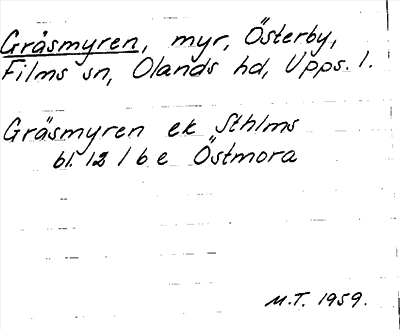 Gräsmyren, myr, Österby,
Films sn, Olands hd, Upps. l.
Gräsmyren ek Sthlms
bl. 12 1 b e Östmora
M.T. 1959.